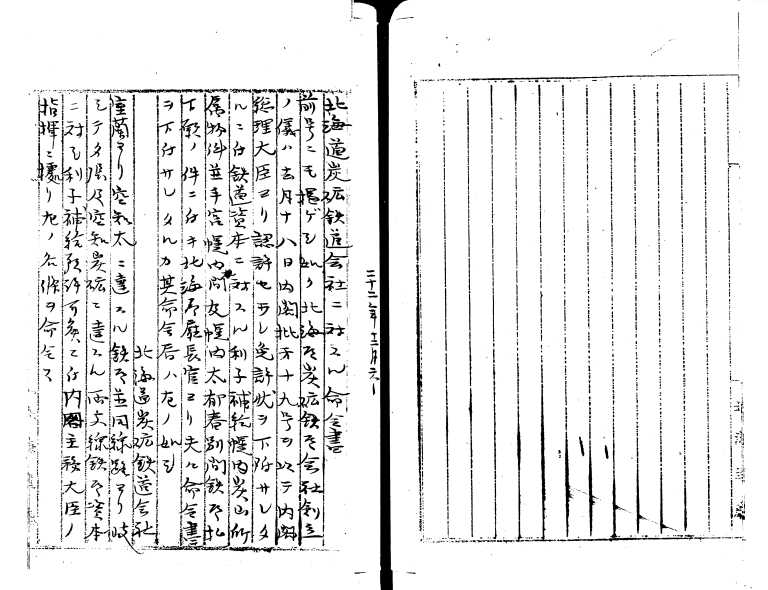 北海道炭砿鉄道会社ニ対スル命令書
前号ニモ掲ゲシ如ク北海道炭砿鉄道会社創立
ノ儀ハ去月十八日内閣批第十九号ヲ以テ内閣
総理大臣ヨリ認許セラレ免許状ヲ下附サレタ
ルニ付鉄道資本ニ対スル利子補給幌内炭山所
属物件並手宮幌内間及幌内太郁春別間鉄道払
下願ノ件ニ付キ北海道庁長官ヨリ夫レ命令書
ヲ下付サレタルカ其命令書ハ左ノ如シ
北海道炭砿鉄道会社
室蘭ヨリ空知太ニ達スル鉄道並同線路ヨリ岐
シテ夕張及空知炭砿ニ達スル両支線鉄道資本
ニ対シ利子補給
ニ付内閣主務大臣ノ
指揮ニ拠リ左ノ各條ヲ命令ス
二十二年十二月六